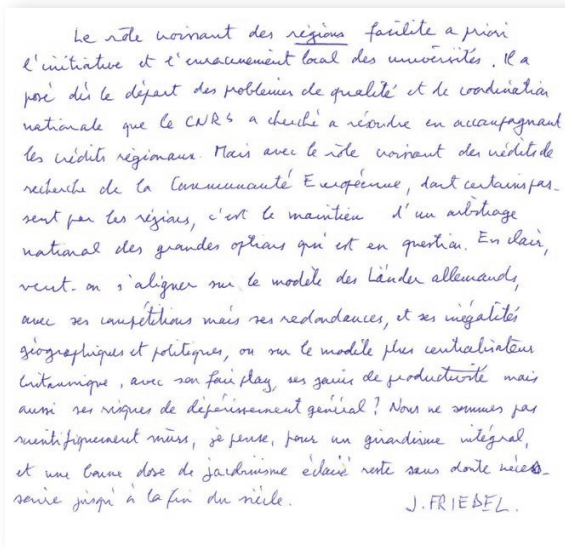 Le rôle croissant des régions facilite a priori
l'initiative et l'enracinement local des universités. Il a
posé dès le départ des problèmes de qualité et de coordination
nationale que le CNRS a cherché a résoudre en accompagnant
les crédits régionaux. Mais avec le rôle croissant des crédits de
recherche de la Communauté Européenne, dont certains pas-
sent par les régions, c'est le maintien d'un arbitrage
national des grandes options qui est en question. En clair,
veut-on s'aligner sur le modèle des Länder allemands,
avec ses compétitions mais ses redondances, et ses inégalités
géographiques et politiques, ou sur le modèle plus centralisateur
britannique, avec son fair play, ses gains de productivité mais
aussi ses risques de dépérissement général ? Nous ne sommes pas
scientifiquement mûrs, je pense, pour un girondisme intégral,
et une bonne dose de jacobinisme éclairé reste sans doute néces-
saire jusqu'à la fin du siècle.
J. FRIEDEL.